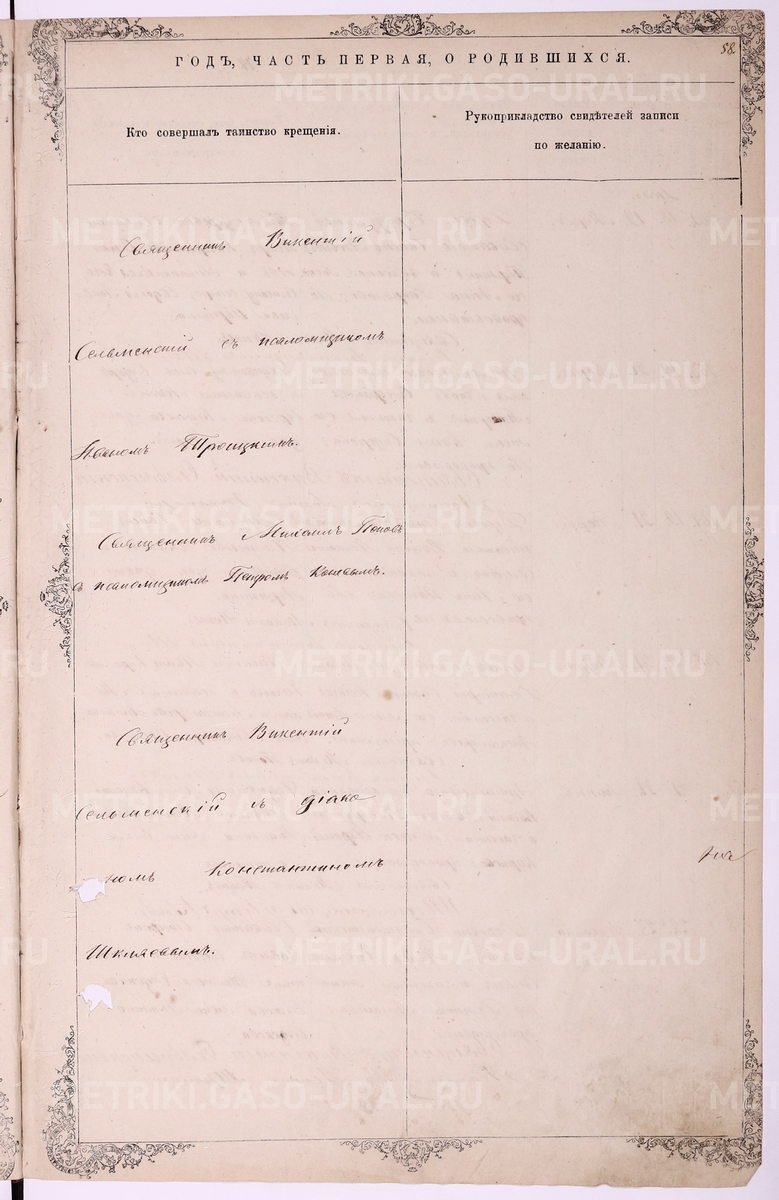 58.
ГОДЪ, ЧАСТЬ ПЕРВАЯ, О РОДИВШИХСЯ.
Кто совершалъ таинство крещенія.
Рукоприкладство свидѣтелей записи
по желанію.
Священникъ Викентій
Сельменскій съ псаломщикомъ
Іоанномъ Троицкимъ.
Священникъ Михаилъ Поповъ
съ псаломщикомъ Петромъ
Священникъ Викентій
Сельменскій съ діако
номъ Константиномъ
Шкляевымъ.
METRIKI.GASO-URAL.RU